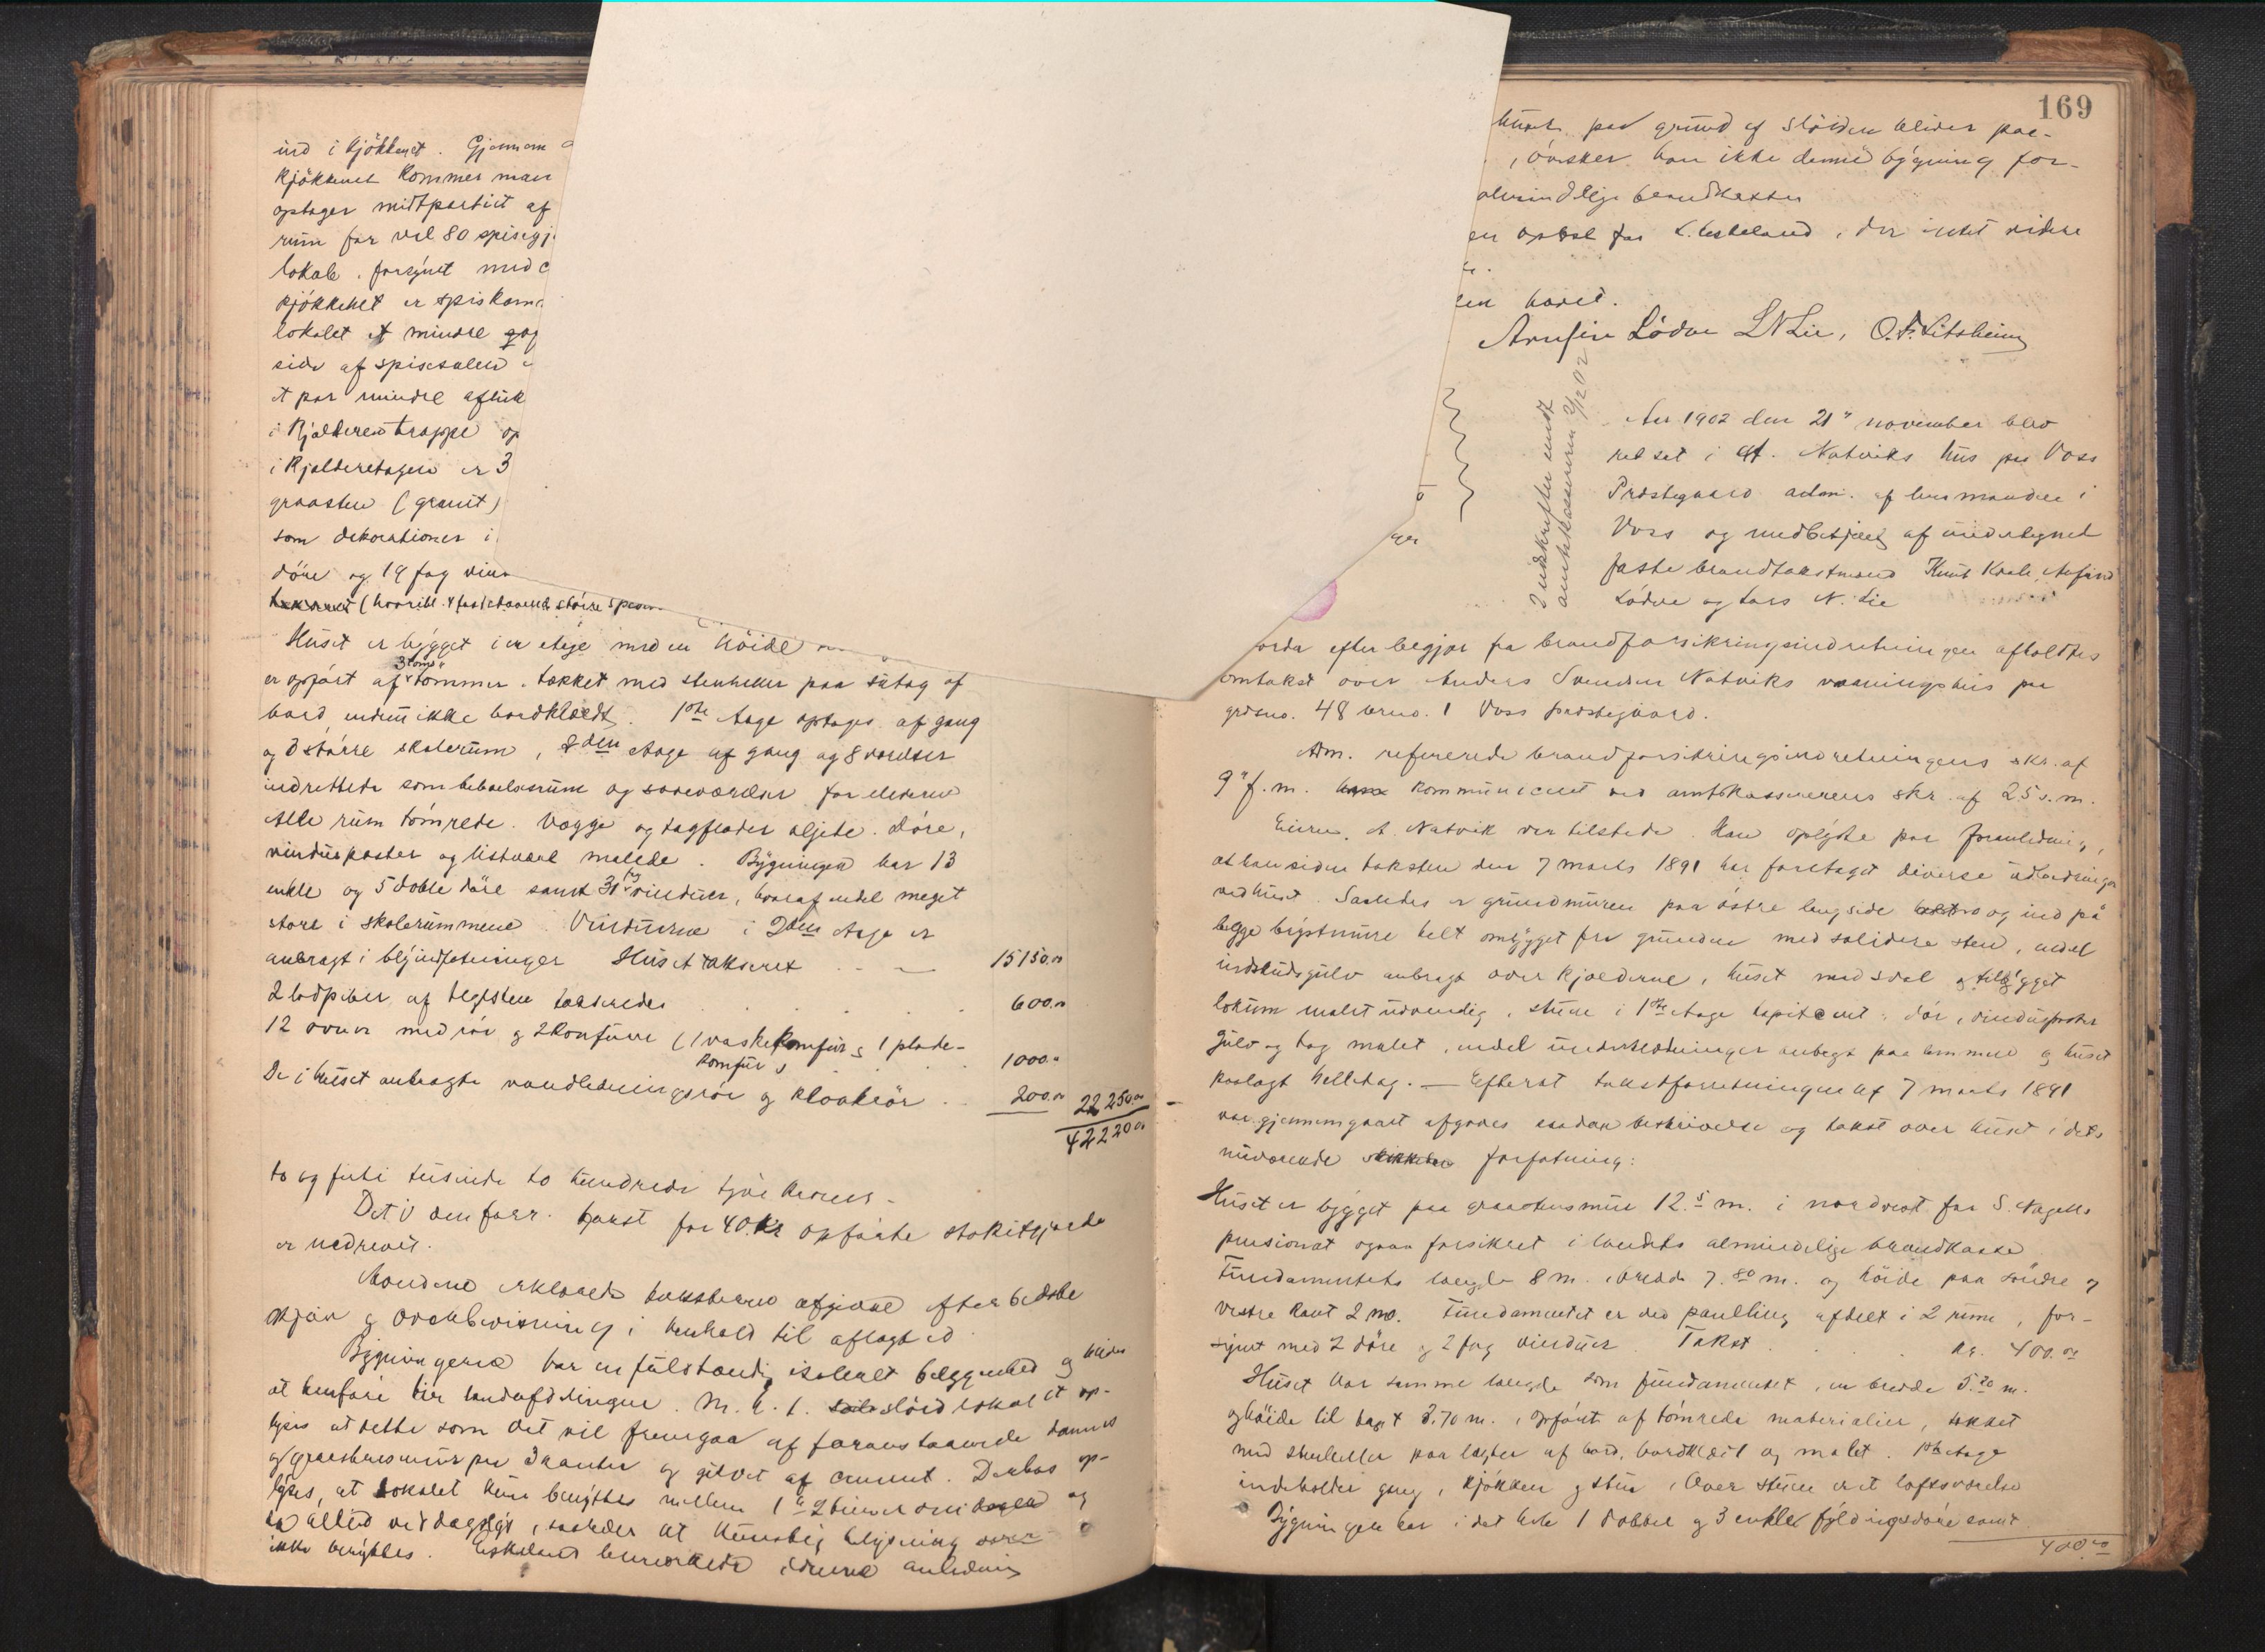 ind i kjökkenet. Gjennem
kjökkenet kommer man
optager midtpartiet af
rum for vel 80 spisegj
lokale. forsynet med
kjökkenet er spiskam
lokalet et mindre
side af spisesalen
et par mindre afluk
i kjelderen trappe op
i kjelderetagen er 3
graasten (granit)
som dekorationer i
döre og 19 fag vin
Huset er bygget i en etage med en höide
er opfört af 3 toms tömmer. tækket med stenheller paa sutag af
bord endnu ikke bordklædt. 1ste etage optages af gang
og 3 större skolerum, 2den etage af gang og 8 værelser
indrettede som beboelsesrum og soveværelser for eleverne
Alle rum tömrede. Vægge og tagflader oljete. Döre,
vindusposter og listværk malede. Bygningen har 13
enkle og 5 doble döre samt 31 fag vinduer, hvoraf endel meget
store i skolerummene. Vinduerne i 2den etage er
anbragt i blyindfatninger Huset takseret 15150.00
2 lodpiber af teglsten takseredes 600.00
12 ovne med rör og 2 komfurer (1 vaskekomfur & 1 plade-
komfur) 1000.00
De i huset anbragte vandledningsrör og kloakrör 200.00 22250.00
42220.00
to og firti tusinde to hundrede tyve kroner.
Det i den forr. takst for 40 kr opförte stakitgjærde
er nedrevet.
Mændene erklærede taksterne afgivne efter bedste
skjön og overbevisning i henhold til aflagt ed
Bygningerne har en fuldstændig isoleret beliggenhed og
at henföre til landafdelingen. M. h. t. slöidlokalet op-
lyses at dette som det vil fremgaa af foranstaaende dannes
af graastensmur paa 3 kanter og gulvet af cement. Derhos op-
lyses, at lokalet kun benyttes mellem 1 à 2 timer om dagen og
altid ved dagslys, saaledes at kunstig belysning
ikke benyttes. bemærkede i denne anledning
169
huset paa grund af slöiden bliver paa-
, önsker han ikke denne bygning for-
almindelige brandkasse
der intet videre
hævet.
Arnfin Lödve L N Lie, O. F. Sitsheim
2 udskrifter sendt
amtskassereren 2/12 02
Aar 1902 den 21" november blev
ret sat i A. Natviks hus paa Voss
Prestegaard adm. af lensmanden i
Voss og medbetjent af undertegnet
faste brandtakstmænd Knut Arnfind
Lödve og Lars N. Lie
efter begjær fra brandforsikringsindretningen afholdtes
omtakst over Anders Svendsen Natviks vaaningshus paa
grdsno. 48 brno. 1 Voss prestegaard.
Adm. refererede brandforsikringsindretningens skr. af
9" f. m. kommuniceret ved amtskassererens skr. af 25 s. m.
Eieren A. Natvik var tilstede. Han oplyste paa foranledning,
at han siden taksten den 7 marts 1891 har foretaget diverse udbedringer
ved huset. Saaledes er grundmuren paa östre langside og ind på
begge helt ombygget fra grunden med solidere sten, endel
indskudsgulv anbragt over kjælderne, huset med sval og tilbygget
lokum malet udvendig, stuen i 1ste etage tapiceret, dör, vindusposter
gulv og tag malet, endel anbragt paa og huset
paalagt helletag. — Efterat takstforretningen af 7 marts 1891
var gjennemgaaet afgaves saadan beskrivelse og takst over huset i dets
nuværende forfatning:
Huset er bygget paa graastensmur 12.5 m. i nordvest for S. Nagells
pensionat ogsaa forsikret i landets almindelige brandkasse
Fundamentets længde 8 m. bredde 7.80 m. og höide paa söndre og
vestre kant 2 m. Fundamentet er ved paneling afdelt i 2 rum, for-
synt med 2 döre og 2 fag vinduer. Takst kr. 400.00
Huset har samme længde som fundamentet, en bredde 5.20 m.
og höide til taget 3.70 m., opfört af tömrede materialier, tækket
med stenheller paa lægter af bord, bordklædt og malet. 1ste etage
indeholder gang, kjökken og stue, Over stuen er et loftsværelse
Bygningen har i det hele 1 dobbel og 3 enkle fyldingsdöre samt
400.00